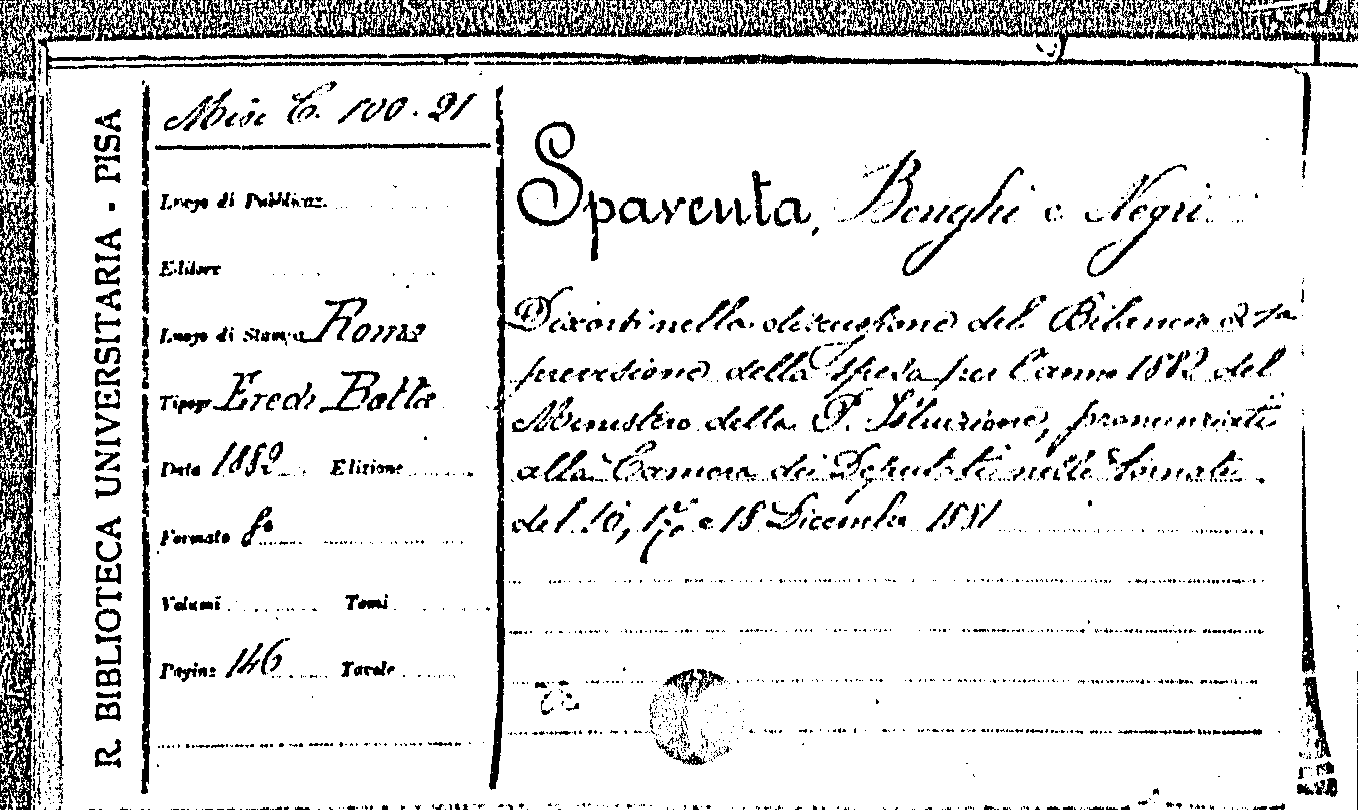 R. BIBLIOTECA UNIVERSITARIA - PISA
Misc C. 100.21
Luogo di Pubblicaz.
Editore
Luogo di Stampa Roma
Tipogr. Eredi Botta
Data 1882 Edizione
Formato 8°
Volumi Tomi
Pagine 146 Tavole
Spaventa, Bonghi e Negri
Discorsi nella discussione del Bilancio di 1a
previsione della Spesa per l'anno 1882 del
Ministero della P. Istruzione, pronunziati
alla Camera dei Deputati nelle tornate
del 16, 17 e 18 Dicembre 1881